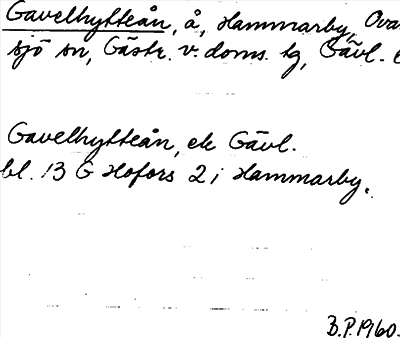 Gavelhytteån, å, Hammarby, Ova
sjö sn, Gästr. v. doms. tg, Gävl.
Gavelhytteån, ek Gävl.
bl. 13 G Hofors 2 i Hammarby.
B.P. 1960.